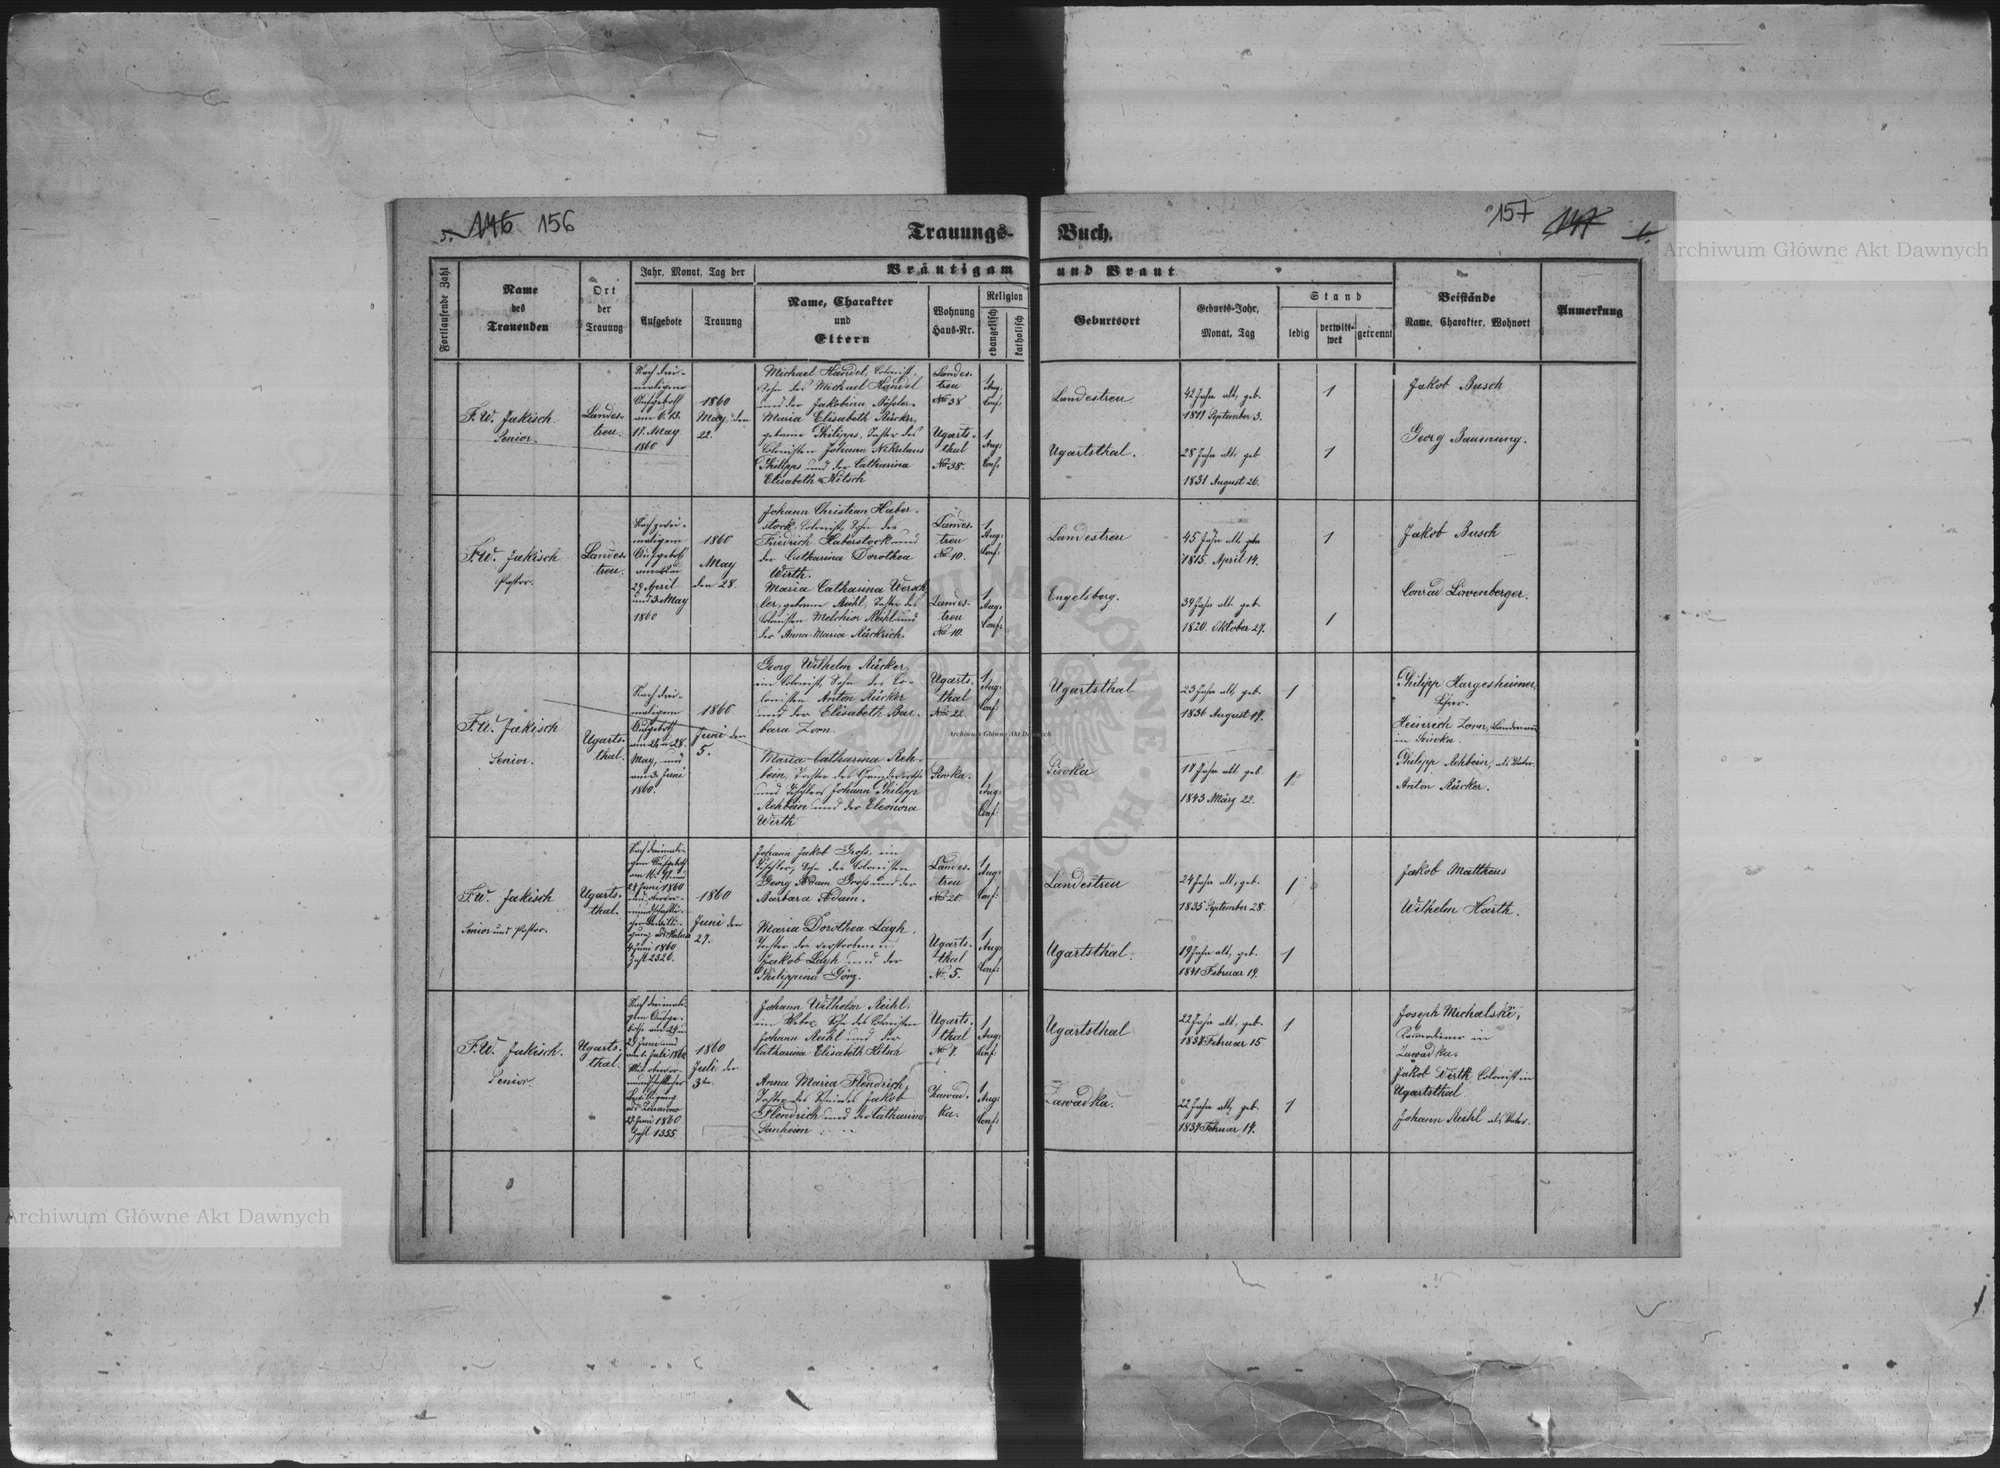 5. 146 156
Trauungs-
Buch.
157 147 6.
Fortlaufende Zahl
Name
des
Trauenden
Ort
der
Trauung
Jahr, Monat, Tag der
Aufgebote
Trauung
Bräutigam
und Braut
Name, Charakter
und
Eltern
Wohnung
Haus-Nr.
Religion
evangelisch
katholisch
Geburtsort
Geburts-Jahr,
Monat, Tag
Stand
ledig
verwitt-
wet
getrennt
Beistände
Name, Charakter, Wohnort
Anmerkung
F. W. Jakisch
Senior.
Landes-
treu.
Nach drei-
maligem
Aufgebott
am 6. 13.
17. May
1860
1860
May den
22.
Michael Handel, Colonist,
Sohn des Michael Handel
und der Jakobina
Maria Elisabeth Rücker,
geborne Philipps, Tochter des
Colonisten Johann Nikolaus
Philipps und der Catharina
Elisabeth Kitsch
Landes-
treu
No 38
Ugarts-
thal
No 38.
1
Aug:
Conf:
1
Aug:
Conf:
Landestreu
Ugartsthal.
42 Jahr alt, geb.
September 3.
28 Jahr alt, geb
1831 August 26.
1
1
Jakob Busch
Georg Baumung.
F. W. Jakisch
Pastor.
Landes-
treu.
Nach drei-
maligem
Aufgebott
29 April
und 3. May
1860
1860
May
den 28.
Johann Christian Haber-
stock, Colonist, Sohn des
Friedrich Haberstock und
der Catharina Dorothea
Wirth.
Maria Catharina Wersch-
ler, geborne Reihl, Tochter des
Colonisten Melchior Reihl und
der Anna Maria Rückrich.
Landes-
treu
No 10.
Landes-
treu
No 10.
1
Aug:
Conf:
1
Aug:
Conf:
Landestreu
Engelsberg.
45 Jahr alt, geb
1815. April 14.
39 Jahr alt geb.
1820. Oktober 27.
1
1
Jakob Busch
Conrad Löwenberger.
F. W. Jakisch
Senior.
Ugarts-
thal.
Nach drei-
maligem
Aufgebott
28.
May, und
am 3. Juni
1860.
1860
Juni den
5.
Georg Wilhelm Rücker,
ein Colonist, Sohn des Co-
lonisten Anton Rücker
und der Elisabeth Bar-
bara Zorn.
Maria Catharina Reh-
bein, Tochter des
und Tischlers Johann Philipp
Rehbein und der Eleonora
Wirth
Ugarts-
thal
No 22.
Siwka.
1
Aug:
Conf:
1
Aug:
Conf:
Ugartsthal
Siwka
23 Jahr alt, geb.
1836 August 17.
17 Jahr alt geb.
1843 März 22.
1
1
Philipp Hargesheimer,
Heinrich Zorn,
in Siwka.
Philipp Rehbein, als Vater.
Anton Rücker.
F. W. Jakisch
Senior und Pastor.
Ugarts-
thal.
Nach dreimali-
gem Aufgebott
24 Juni 1860
4 Juni 1860
Zahl 2326.
1860
Juni den
27.
Johann Jakob Groß, ein
Tischler, Sohn des Colonisten
Georg Adam Groß und der
Barbara Adam.
Maria Dorothea Layh,
Tochter des verstorbenen
Jakob Layh und der
Philippina Görz.
Landes-
treu
No 20.
Ugarts-
thal
No. 5.
1
Aug:
Conf:
1
Aug:
Conf:
Landestreu
Ugartsthal.
24 Jahr alt, geb.
1835 September 28.
19 Jahr alt, geb.
1841 Februar 19.
1
1
Jakob Mattheus
Wilhelm Harth.
F. W. Jakisch.
Senior.
Ugarts-
thal.
Nach dreimali-
gem Aufge-
29 Juni und
Juli 1860
Bewilligung
27 Juni 1860
Zahl 1355
1860
Juli der
3te.
Johann Wilhelm Reihl,
ein Weber, Sohn des Colonisten
Johann Reihl und der
Catharina Elisabeth Kitsch
Anna Maria Flendrich,
Jakob
Flendrich und der Catharina
Ugarts-
thal
No 7.
Zawad-
ka.
1
Aug:
Conf:
1
Aug:
Conf:
Ugartsthal
Zawadka.
22 Jahr alt, geb.
Februar 15.
22 Jahr alt, geb.
Februar 14.
1
1
Joseph Michalski,
in
Zawadka.
Jakob Wirth, Colonist in
Ugartsthal
Johann Reihl als Vater.
Archiwum Główne Akt Dawnych
Archiwum Główne Akt Dawnych
Archiwum Główne Akt Dawnych